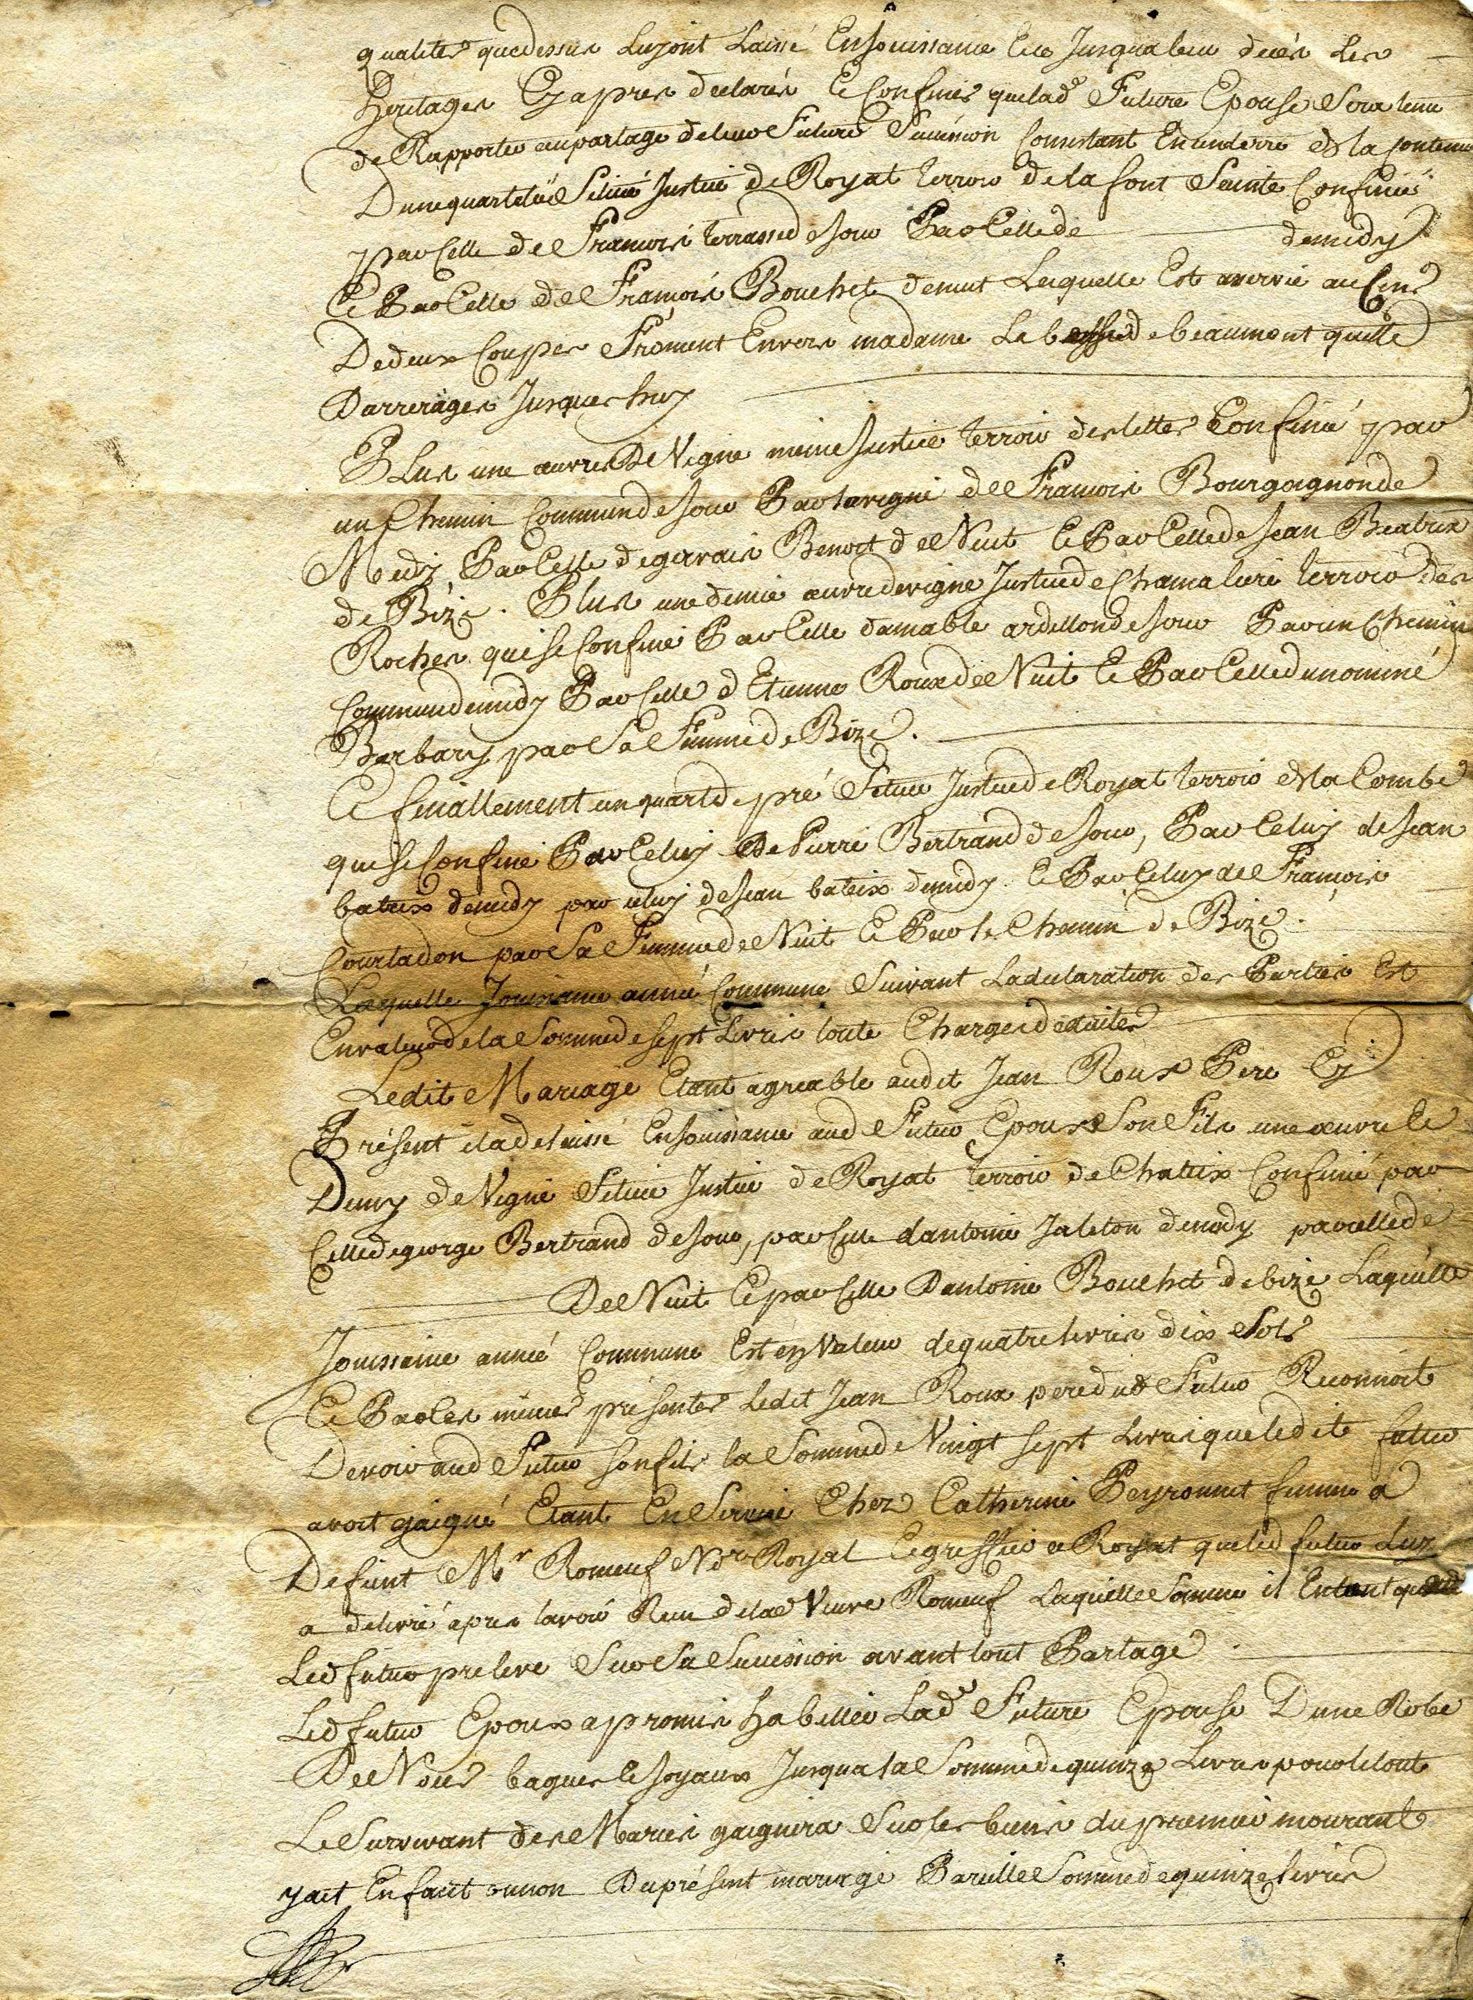 qualités quedessus Luyont Laissé Enjouissance Ee Jusqualeur decés Les
Heritages Cyapres declarés Et Confinés quelade Future Epouse Sera tenue
de Rapporter aupartage deleur Future Succession Consistant Enunterre de la Contenue
Dune quartelée Scitué Justice de Royat terroir de la font Sainte Confinée
par Celle de François terrasse de jour Par Celle de demidy
Et Par Celle de François Bouchet denuit Laquelle Est au Cens
De deux Coupes Froment Envers madame de beaumont quitte
Darrerages Jusques huy
Plus une œuvre De Vigne meme Justice terroir des Confiné par
un Chemin Commun de jour Par la vigne de François Bourgoignon de
Midy Par Celle de gervais Benoit de Nuit Et Par Celle de Jean Beatrix
de Bize. Plus une demie œuvre de vigne Justice de Chamaliere terroir des
Roches qui se Confine Par Celle damable ardillon de jour Par un Chemin
Commun demidy Par Celle d Etienne Roux de Nuit Et Par Celle du nommé
Barbary par Sa Femme de Bize.
Et finallement un quart de pré Scitué Justice de Royat terroir de la Combe
qui se Confine Par Celuy De Pierre Bertrand de jour, Par Celuy de Jean
bateix demidy par celuy de Jean bateix demidy Et Par Celuy de François
Courtadon par Sa Femme de Nuit Et Par le Chemin de Bize.
Laquelle Jouissance année Commune Suivant Ladeclaration des Parties Est
Envaleur de la Somme de sept Livres toute Charges deduites
Ledit Mariage Etant agreable audit Jean Roux Pere Cy
Présent ila delaissé Enjouissance aud Futur Epoux Son Fils une œuvre Et
Demy de Vigne Scitué Justice de Royat terroir de Chateix Confiné par
Celle de george Bertrand de jour, par Celle dantoine Jaleton demidy par celle de
De Nuit Et par Celle Dantoine Bouchet de bize Laquelle
Jouissance année Commune Est en Valeur de quatre livres dix Sols
Et Par Les mêmes présentes Ledit Jean Roux pere dud Futur Reconnoit
Devoir aud Futur son fils la Somme de Vingt sept Livres que ledit futur
avoit gaigné Etant En Service Chez Catherine Peyronnet femme a
Defunt Mr Romeuf Nore Royal Et greffier a Royat que led futur Luy
a delivré apres lavoir Reçu de la Veuve Romeuf Laquelle Somme il Entant que
Led futur preleve Sur Sa Succession avant tout Partage.
Led futur Epoux a promis habiller Lade Future Epouse Dune Robe
De Noces bagues Et Joyaux Jusqua la Somme de quinze Livres pour le tout
Le Survivant des Mariés gaignera Sur les biens du premier mourant
yait Enfant ounon Du présent mariage Pareille Somme de quinze livres